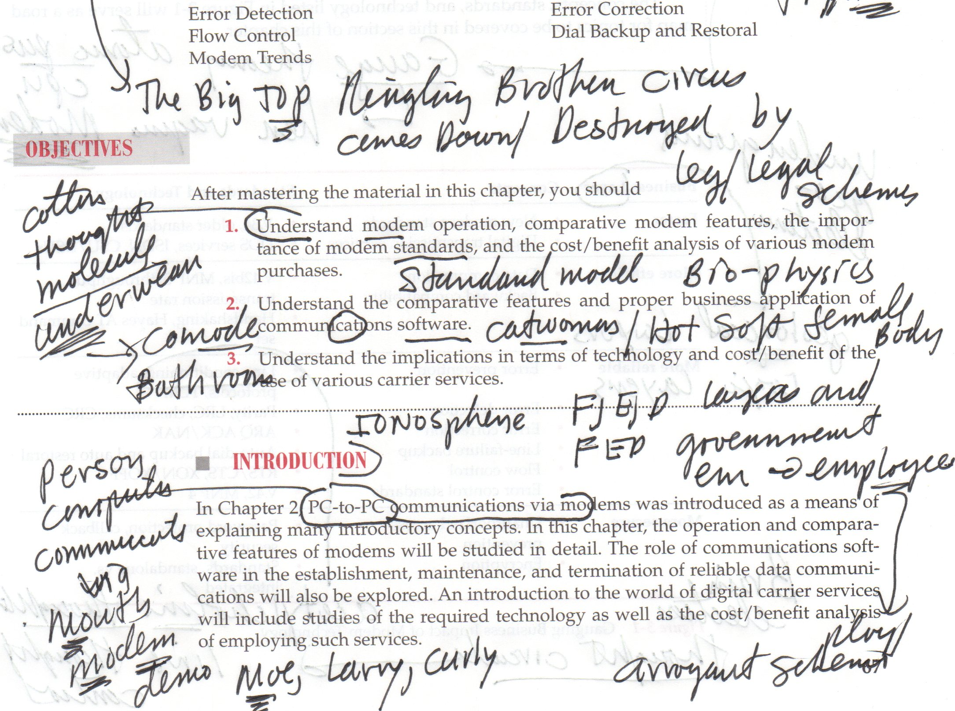 Error Detection
Error Correction
Flow Control
Dial Backup and Restoral
Modem Trends
The Big Top Ringling Brothen Circus
comes Down/ Destroyed by
leg/legal
schemes
OBJECTIVES
After mastering the material in this chapter, you should
cotton
thoughts
molecule
underwear
→ Comode
Bathroom
1. Understand modem operation, comparative modem features, the impor-
tance of modem standards, and the cost/benefit analysis of various modem
purchases.
Standard model Bio-physics
2. Understand the comparative features and proper business application of
communications software.
catwoman/Hot Soft
Body
3. Understand the implications in terms of technology and cost/benefit of the
use of various carrier services.
IONOSphene
layers and
FED government
em → employee
INTRODUCTION
person
computer
mouth
modem
demo
In Chapter 2 PC-to-PC communications via modems was introduced as a means of
explaining many introductory concepts. In this chapter, the operation and compara-
tive features of modems will be studied in detail. The role of communications soft-
ware in the establishment, maintenance, and termination of reliable data communi-
cations will also be explored. An introduction to the world of digital carrier services
will include studies of the required technology as well as the cost/benefit analysis
of employing such services.
ploy/
arrogant
Moe, Larry, Curly